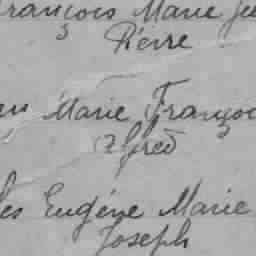 François Marie
Pierre
Marie François
Alfred
Eugène Marie
Joseph